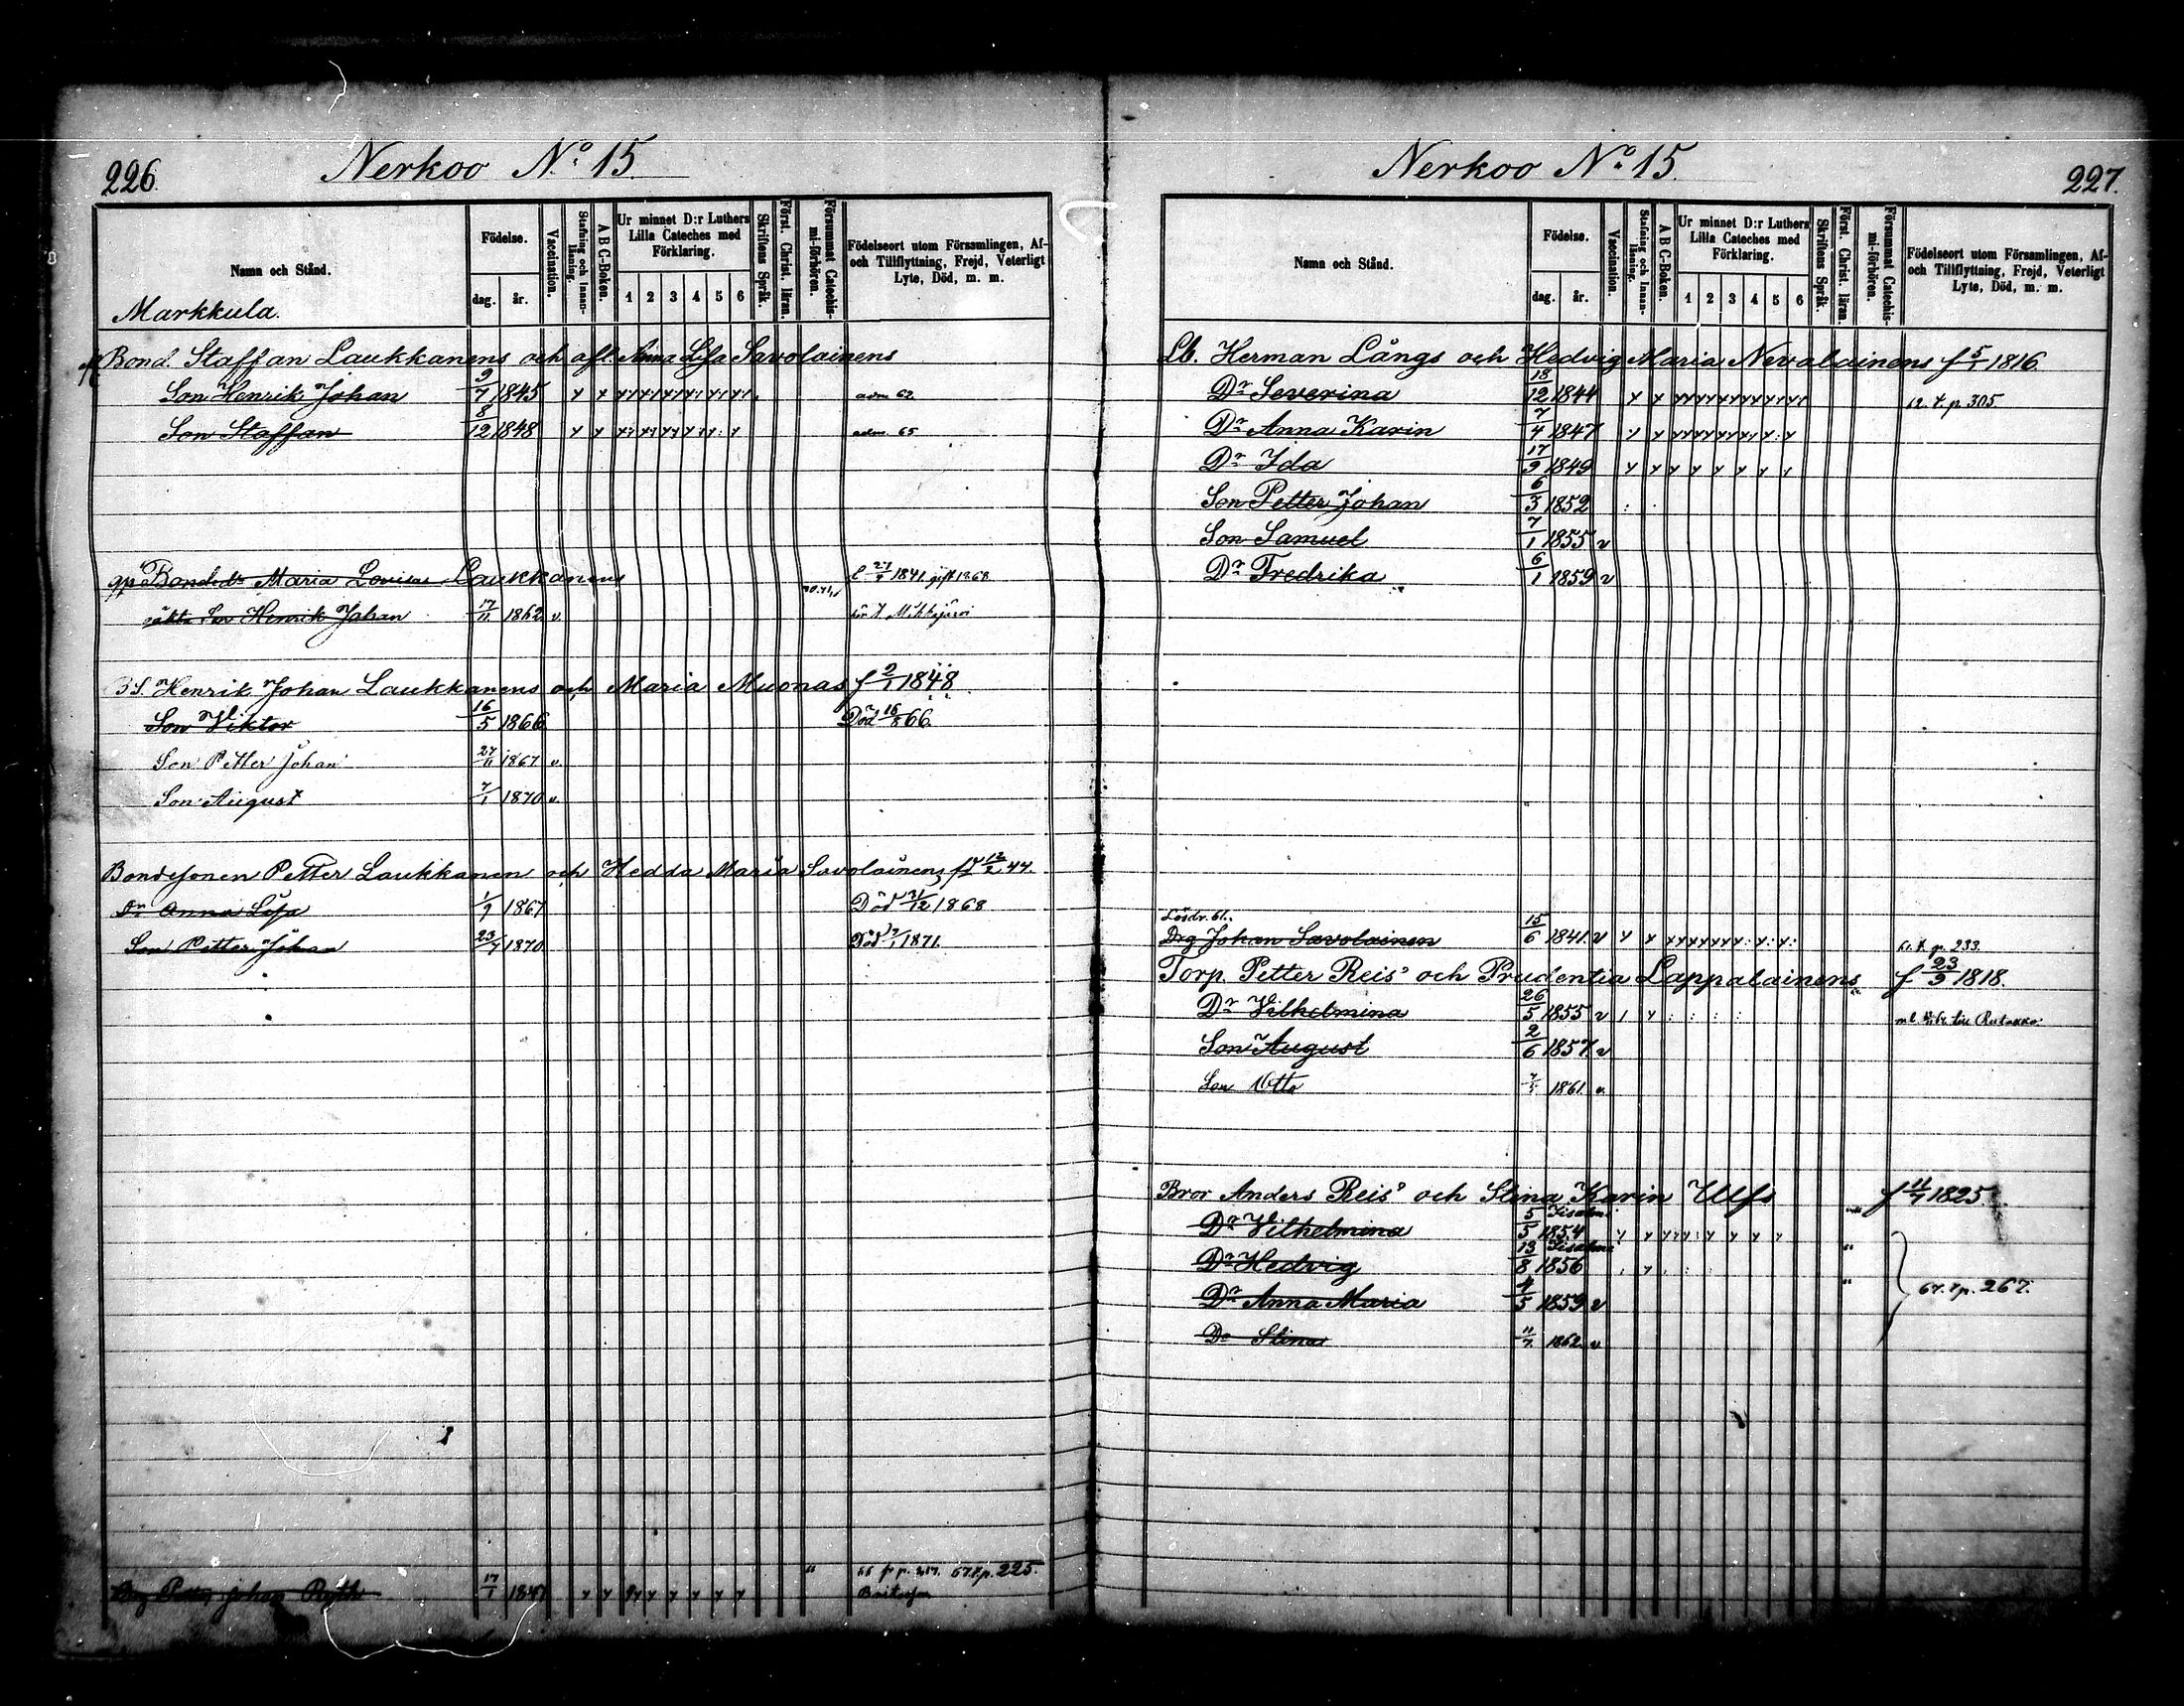 226.
Nerkoo No. 15.
Namn och Stånd.
Födelse.
dag. år.
Vaccination.
Stafning och Innan-läsning.
A B C-Boken.
Ur minnet D:r Luthers Lilla Cateches med Förklaring.
1 2 3 4 5 6
Skriftens Språk.
Först. Christ. läran.
Försummat Catechis-mi-förhören.
Födelseort utom Församlingen, Af- och Tillflyttning, Frejd, Veterligt Lyte, Död, m. m.
Markkula.
Bond. Staffan Laukkanens och afl. Anna Lisa Savolainens
Son Henrik Johan 9/7 1845 adm. 62
Son Staffan 8/12 1848 adm. 65
Maria Lovisas Laukkanens 1841. gift 1868
Son Henrik Johan 17/11 1862 v.
Henrik Johan Laukkanens och Maria Muonas f 2/1 1848
Son Viktor 16/5 1866 Död 66
Son Petter Johan 27/11 1867 v.
Son August 7/1 1870 v.
Bondesonen Petter Laukkanen och Hedda Maria Savolainens 44.
Dr Anna Lisa 1/9 1867 Död 1868
Son Petter Johan 23/7 1870 Död 1871.
Petter Johan Ryth 17/1 1847 67. t. p. 225.
227.
Nerkoo No. 15.
Namn och Stånd.
Födelse.
dag. år.
Vaccination.
Stafning och Innan-läsning.
A B C-Boken.
Ur minnet D:r Luthers Lilla Cateches med Förklaring.
1 2 3 4 5 6
Skriftens Språk.
Först. Christ. läran.
Försummat Catechis-mi-förhören.
Födelseort utom Församlingen, Af- och Tillflyttning, Frejd, Veterligt Lyte, Död, m. m.
Lb. Herman Långs och Hedvig Maria Nevalainens f 5/1 1816.
Dr Severina 18/12 1844 t. p. 305.
Dr Anna Karin 7/4 1847
Dr Ida 17/9 1849
Son Petter Johan 6/3 1852
Son Samuel 7/1 1855 v
Dr Fredrika 6/1 1859 v
Lösdr. 61.
Drg Johan Savolainen 15/6 1841 v p. 233.
Torp. Petter Reis' och Prudentia Lappalainens f 23/9 1818.
Dr Vilhelmina 26/5 1855 v
Son August 2/6 1857 v
Son Otto 1861. v.
Bror Anders Reis' och Stina Karin Ulfs f 11/7 1825
Dr Vilhelmina 5/5 1854 Iisalmi
Dr Hedvig 13/8 1856 Iisalmi
Dr Anna Maria 4/5 1859 v 67. t. p. 267.
Dr Stina 11/7 1862 v